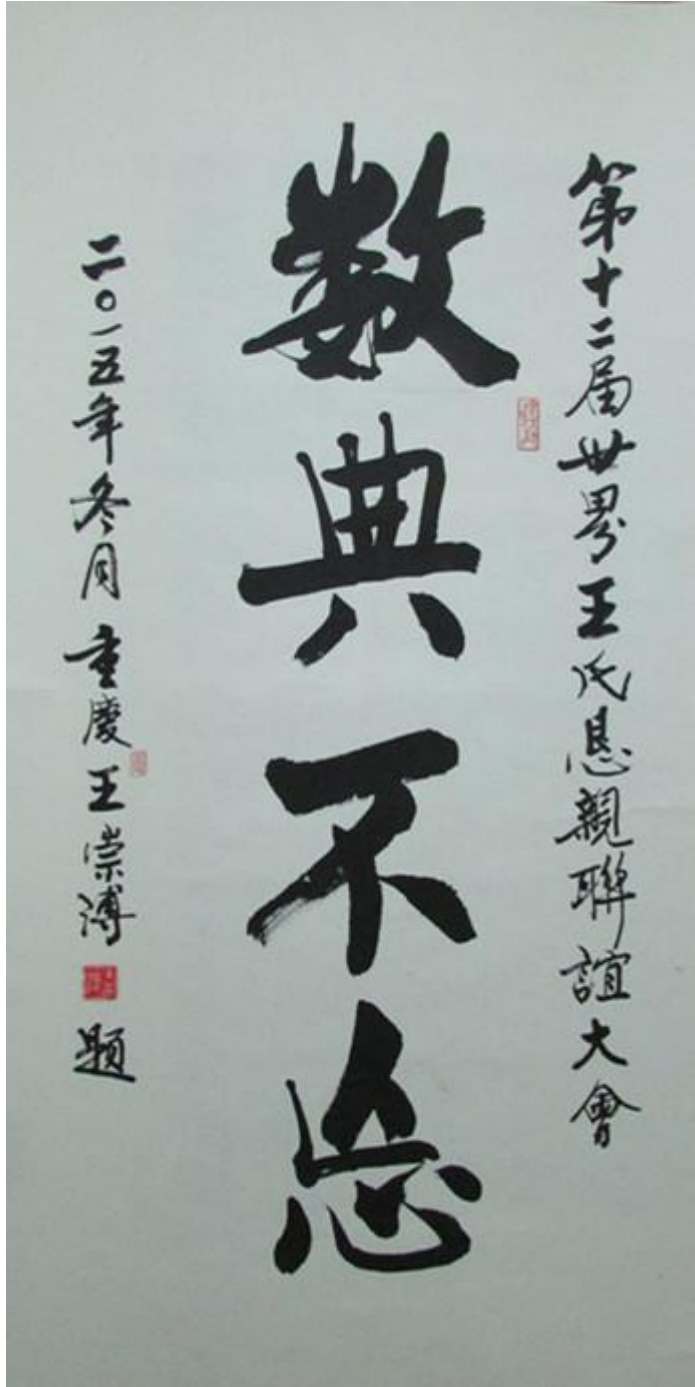 第十二届世界王氏恳親聯誼大會
數典不忘
二〇一五年冬月重慶王崇溥
題